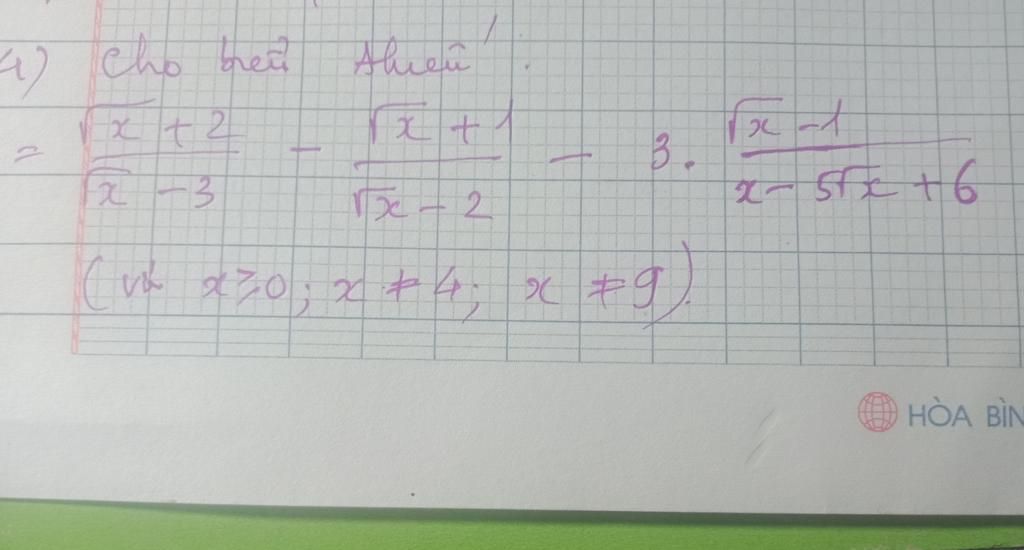 4) Cho biểu thức:
= \frac{\sqrt{x} + 2}{\sqrt{x} - 3} - \frac{\sqrt{x} + 1}{\sqrt{x} - 2} - 3. \frac{\sqrt{x} - 1}{x - 5\sqrt{x} + 6}
(với x ≥ 0; x ≠ 4; x ≠ 9).
HÒA BÌN